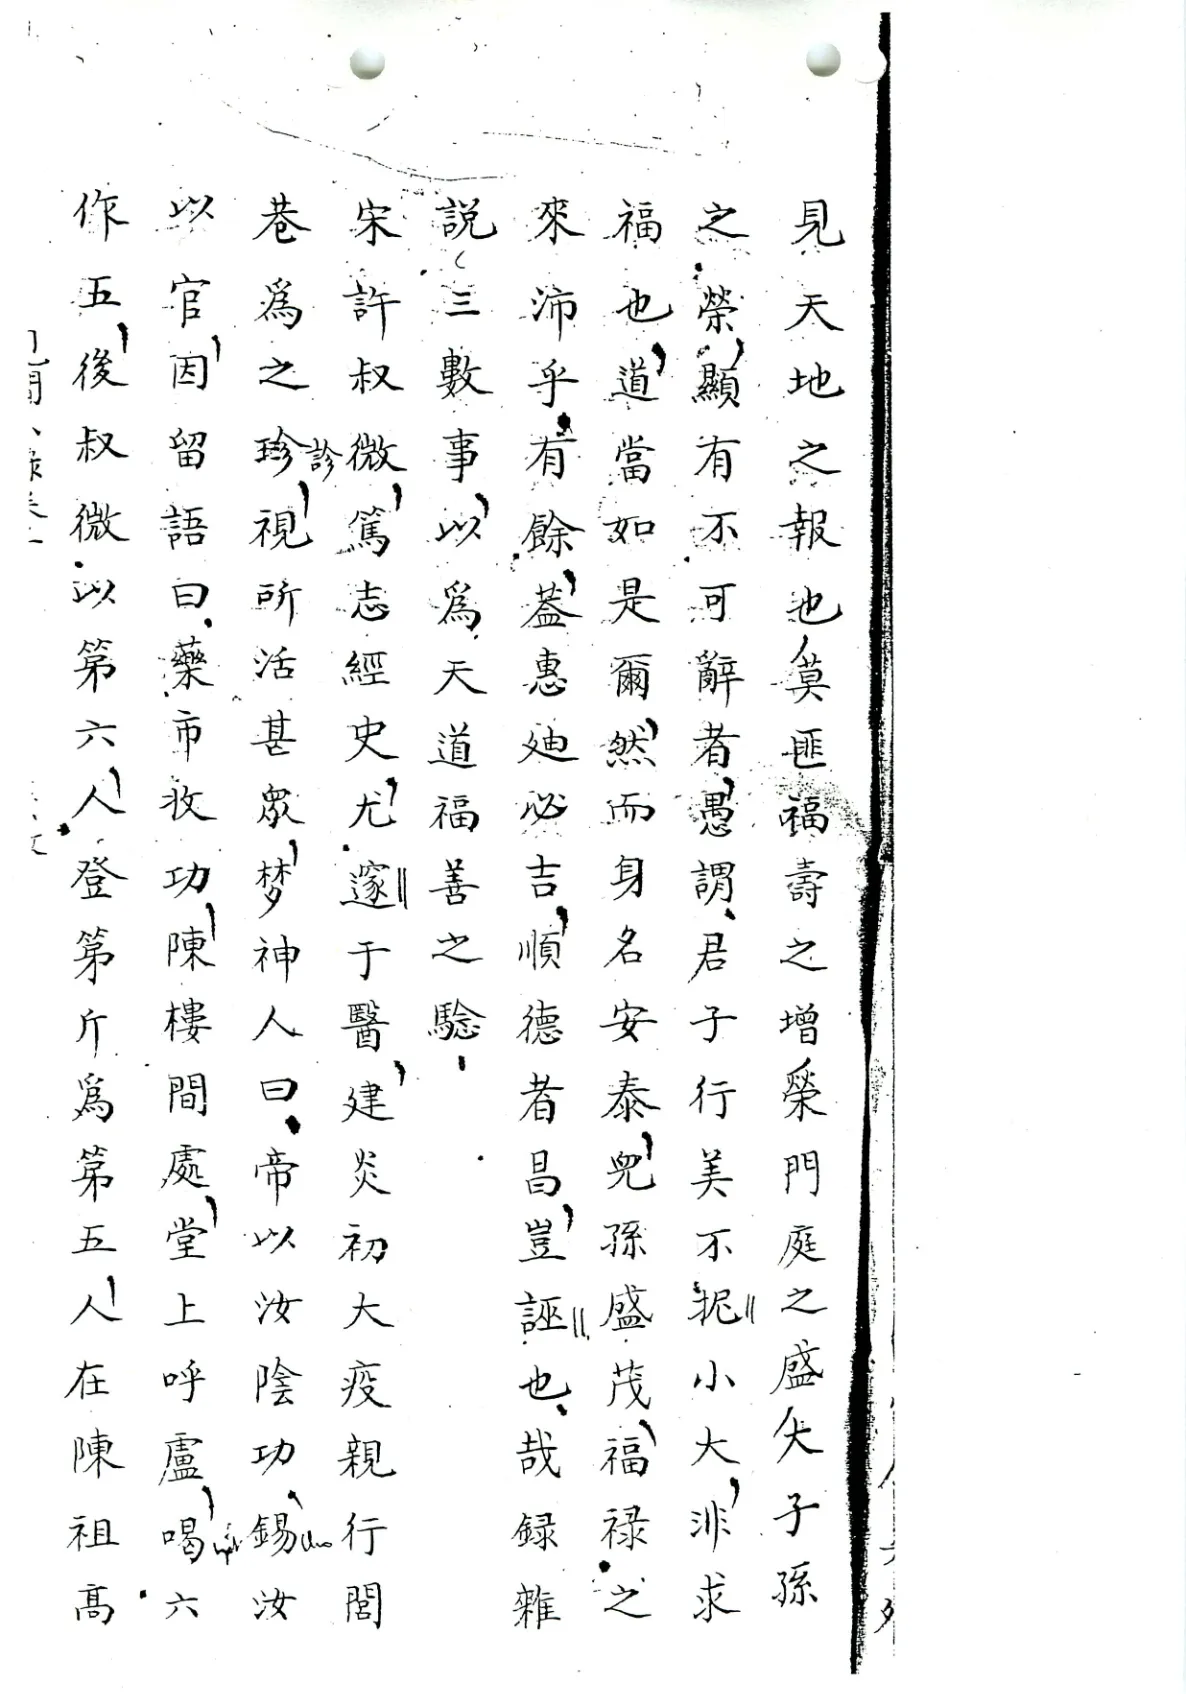 見天地之報也莫匪福壽之增榮門庭之盛大子孫
之榮顯有不可辭者愚謂君子行美不抳小大洴求
福也道當如是爾然而身名安泰兒孫盛茂福禄之
來沛乎有餘葢惠廸必吉順德者昌豈誣也哉録雜
說三數事以爲天道福善之騐
宋許叔微篤志經史尤邃于醫建炎初大疫親行閭
巷爲之珍視所活甚衆夢神人曰帝以汝陰功錫汝
診
以官因留語曰藥市收功陳樓間處堂上呼盧喝六
作五後叔微以第六人登第斤爲第五人在陳祖高